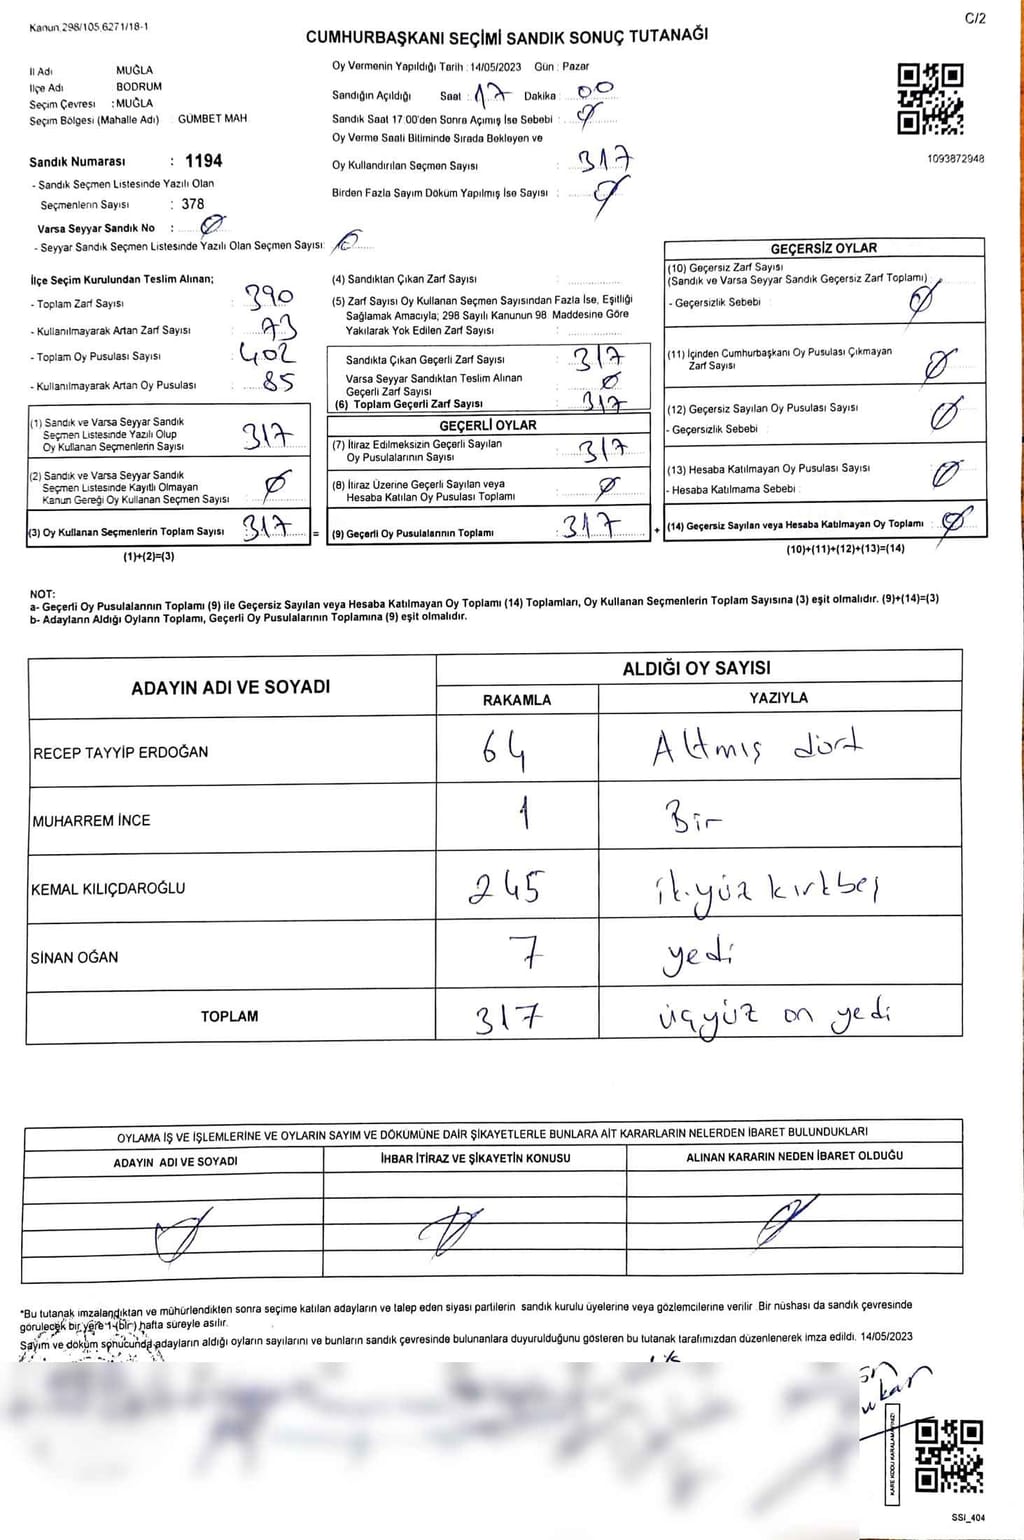 Kanun 298/105,6271/18-1
C/2
CUMHURBAŞKANI SEÇİMİ SANDIK SONUÇ TUTANAĞI
İl Adı MUĞLA
İlçe Adı BODRUM
Seçim Çevresi : MUĞLA
Seçim Bölgesi (Mahalle Adı) : GÜMBET MAH.
Sandık Numarası : 1194
- Sandık Seçmen Listesinde Yazılı Olan
Seçmenlerin Sayısı : 378
Varsa Seyyar Sandık No : Ø
- Seyyar Sandık Seçmen Listesinde Yazılı Olan Seçmen Sayısı: Ø
Oy Vermenin Yapıldığı Tarih : 14/05/2023 Gün : Pazar
Sandığın Açıldığı Saat : 17 Dakika : 00
Sandık Saat 17:00'den Sonra Açımış İse Sebebi : Ø
Oy Verme Saati Bitiminde Sırada Bekleyen ve
Oy Kullandırılan Seçmen Sayısı : 317
Birden Fazla Sayım Döküm Yapılmış İse Sayısı : Ø
1093872948
İlçe Seçim Kurulundan Teslim Alınan;
- Toplam Zarf Sayısı : 390
- Kullanılmayarak Artan Zarf Sayısı : 73
- Toplam Oy Pusulası Sayısı : 402
- Kullanılmayarak Artan Oy Pusulası : 85
(1) Sandık ve Varsa Seyyar Sandık
Seçmen Listesinde Yazılı Olup
Oy Kullanan Seçmenlerin Sayısı 317
(2) Sandık ve Varsa Seyyar Sandık
Seçmen Listesinde Kayıtlı Olmayan
Kanun Gereği Oy Kullanan Seçmen Sayısı Ø
(3) Oy Kullanan Seçmenlerin Toplam Sayısı 317 =
(1)+(2)=(3)
(4) Sandıktan Çıkan Zarf Sayısı :
(5) Zarf Sayısı Oy Kullanan Seçmen Sayısından Fazla İse, Eşitliği
Sağlamak Amacıyla; 298 Sayılı Kanunun 98 Maddesine Göre
Yakılarak Yok Edilen Zarf Sayısı :
Sandıkta Çıkan Geçerli Zarf Sayısı : 317
Varsa Seyyar Sandıktan Teslim Alınan
Geçerli Zarf Sayısı : Ø
(6) Toplam Geçerli Zarf Sayısı : 317
GEÇERLİ OYLAR
(7) İtiraz Edilmeksizin Geçerli Sayılan
Oy Pusulalarının Sayısı : 317
(8) İtiraz Üzerine Geçerli Sayılan veya
Hesaba Katılan Oy Pusulası Toplamı : Ø
(9) Geçerli Oy Pusulalarının Toplamı : 317 +
GEÇERSİZ OYLAR
(10) Geçersiz Zarf Sayısı
(Sandık ve Varsa Seyyar Sandık Geçersiz Zarf Toplamı) :
- Geçersizlik Sebebi : Ø
(11) İçinden Cumhurbaşkanı Oy Pusulası Çıkmayan
Zarf Sayısı Ø
(12) Geçersiz Sayılan Oy Pusulası Sayısı : Ø
- Geçersizlik Sebebi :
(13) Hesaba Katılmayan Oy Pusulası Sayısı : Ø
- Hesaba Katılmama Sebebi :
(14) Geçersiz Sayılan veya Hesaba Katılmayan Oy Toplamı : Ø
(10)+(11)+(12)+(13)=(14)
NOT:
a- Geçerli Oy Pusulalarının Toplamı (9) ile Geçersiz Sayılan veya Hesaba Katılmayan Oy Toplamı (14) Toplamları, Oy Kullanan Seçmenlerin Toplam Sayısına (3) eşit olmalıdır. (9)+(14)=(3)
b- Adayların Aldığı Oyların Toplamı, Geçerli Oy Pusulalarının Toplamına (9) eşit olmalıdır.
ADAYIN ADI VE SOYADI ALDIĞI OY SAYISI
RAKAMLA YAZIYLA
RECEP TAYYİP ERDOĞAN 64 Altmış dört
MUHARREM İNCE 1 Bir
KEMAL KILIÇDAROĞLU 245 ikiyüz kırkbeş
SİNAN OĞAN 7 yedi
TOPLAM 317 üçyüz on yedi
OYLAMA İŞ VE İŞLEMLERİNE VE OYLARIN SAYIM VE DÖKÜMÜNE DAİR ŞİKAYETLERLE BUNLARA AİT KARARLARIN NELERDEN İBARET BULUNDUKLARI
ADAYIN ADI VE SOYADI İHBAR İTİRAZ VE ŞİKAYETİN KONUSU ALINAN KARARIN NEDEN İBARET OLDUĞU
Ø Ø Ø
*Bu tutanak imzalandıktan ve mühürlendikten sonra seçime katılan adayların ve talep eden siyasi partilerin sandık kurulu üyelerine veya gözlemcilerine verilir. Bir nüshası da sandık çevresinde
görülecek bir yere 1 (bir) hafta süreyle asılır.
Sayım ve döküm sonucunda adayların aldığı oyların sayılarını ve bunların sandık çevresinde bulunanlara duyurulduğunu gösteren bu tutanak tarafımızdan düzenlenerek imza edildi. 14/05/2023
KARE KODU KARALAMAYINIZ!
SSI_404